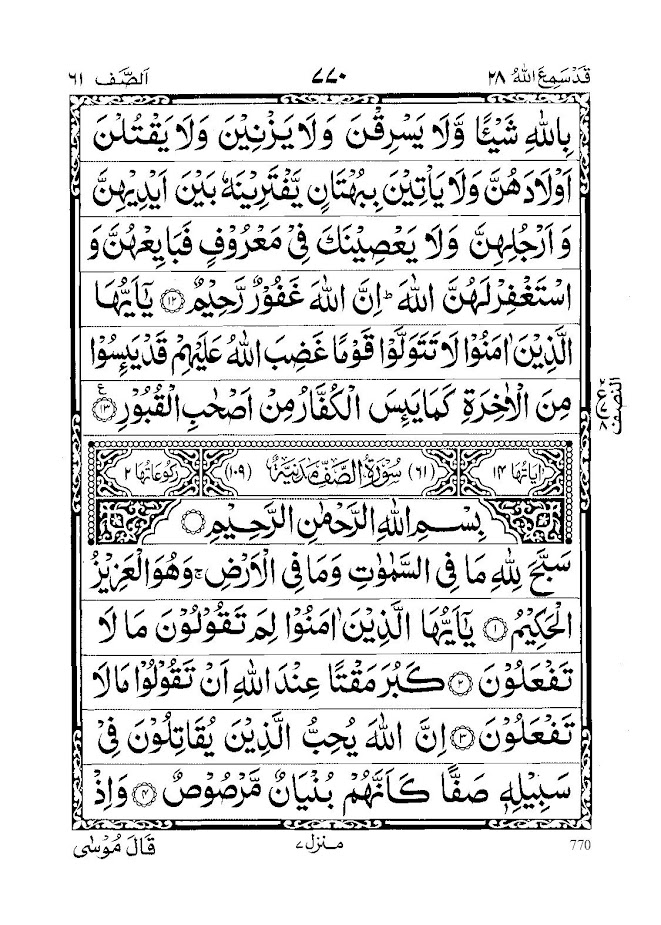 قَدْ سَمِعَ اللّٰهُ ٢٨
٧٧٠
اَلصَّفّ ٦١
بِاللّٰهِ شَيْـًٔا وَّلَا يَسْرِقْنَ وَلَا يَزْنِيْنَ وَلَا يَقْتُلْنَ
اَوْلَادَهُنَّ وَلَا يَاْتِيْنَ بِبُهْتَانٍ يَّفْتَرِيْنَهٗ بَيْنَ اَيْدِيْهِنَّ
وَاَرْجُلِهِنَّ وَلَا يَعْصِيْنَكَ فِيْ مَعْرُوْفٍ فَبَايِعْهُنَّ وَ
اسْتَغْفِرْ لَهُنَّ اللّٰهَ ؕ اِنَّ اللّٰهَ غَفُوْرٌ رَّحِيْمٌ ١٢ يٰۤاَيُّهَا
الَّذِيْنَ اٰمَنُوْا لَا تَتَوَلَّوْا قَوْمًا غَضِبَ اللّٰهُ عَلَيْهِمْ قَدْ يَئِسُوْا
مِنَ الْاٰخِرَةِ كَمَا يَئِسَ الْكُفَّارُ مِنْ اَصْحٰبِ الْقُبُوْرِ ١٣ ع
النصف
اٰيَاتُهَا ١٤
(٦١) سُوْرَةُ الصَّفِّ مَدَنِيَّةٌ (١٠٩)
رُكُوْعَاتُهَا ٢
بِسْمِ اللّٰهِ الرَّحْمٰنِ الرَّحِيْمِ
سَبَّحَ لِلّٰهِ مَا فِي السَّمٰوٰتِ وَمَا فِي الْاَرْضِ ۚ وَهُوَ الْعَزِيْزُ
الْحَكِيْمُ ١ يٰۤاَيُّهَا الَّذِيْنَ اٰمَنُوْا لِمَ تَقُوْلُوْنَ مَا لَا
تَفْعَلُوْنَ ٢ كَبُرَ مَقْتًا عِنْدَ اللّٰهِ اَنْ تَقُوْلُوْا مَا لَا
تَفْعَلُوْنَ ٣ اِنَّ اللّٰهَ يُحِبُّ الَّذِيْنَ يُقَاتِلُوْنَ فِيْ
سَبِيْلِهٖ صَفًّا كَاَنَّهُمْ بُنْيَانٌ مَّرْصُوْصٌ ٤ وَاِذْ
770
منزل ٧
قَالَ مُوْسٰى